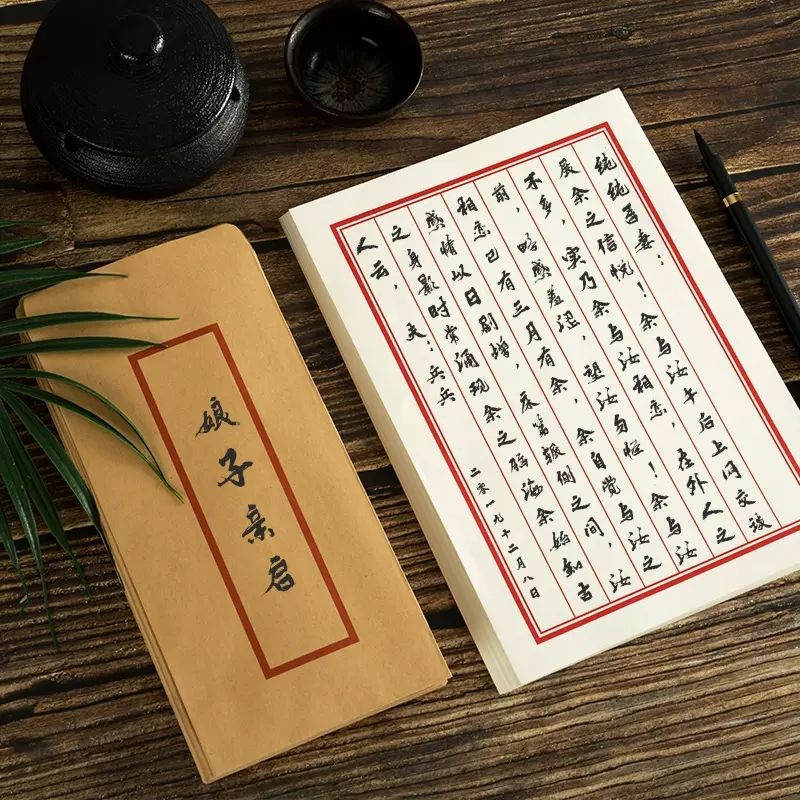 纯纯吾妻：
展余之信悦！余与汝午后上网交谈
不多，实乃余与汝相恋，在外人之
前，略感羞涩，望汝勿怪！余与汝
相恋已有三月有余，余自觉与汝之
感情以日剧增，床笫辗侧之间，汝
之身影时常涌现余之脑海余始知古
人云，夫：兵兵
二零一九十二月八日
娘子亲启